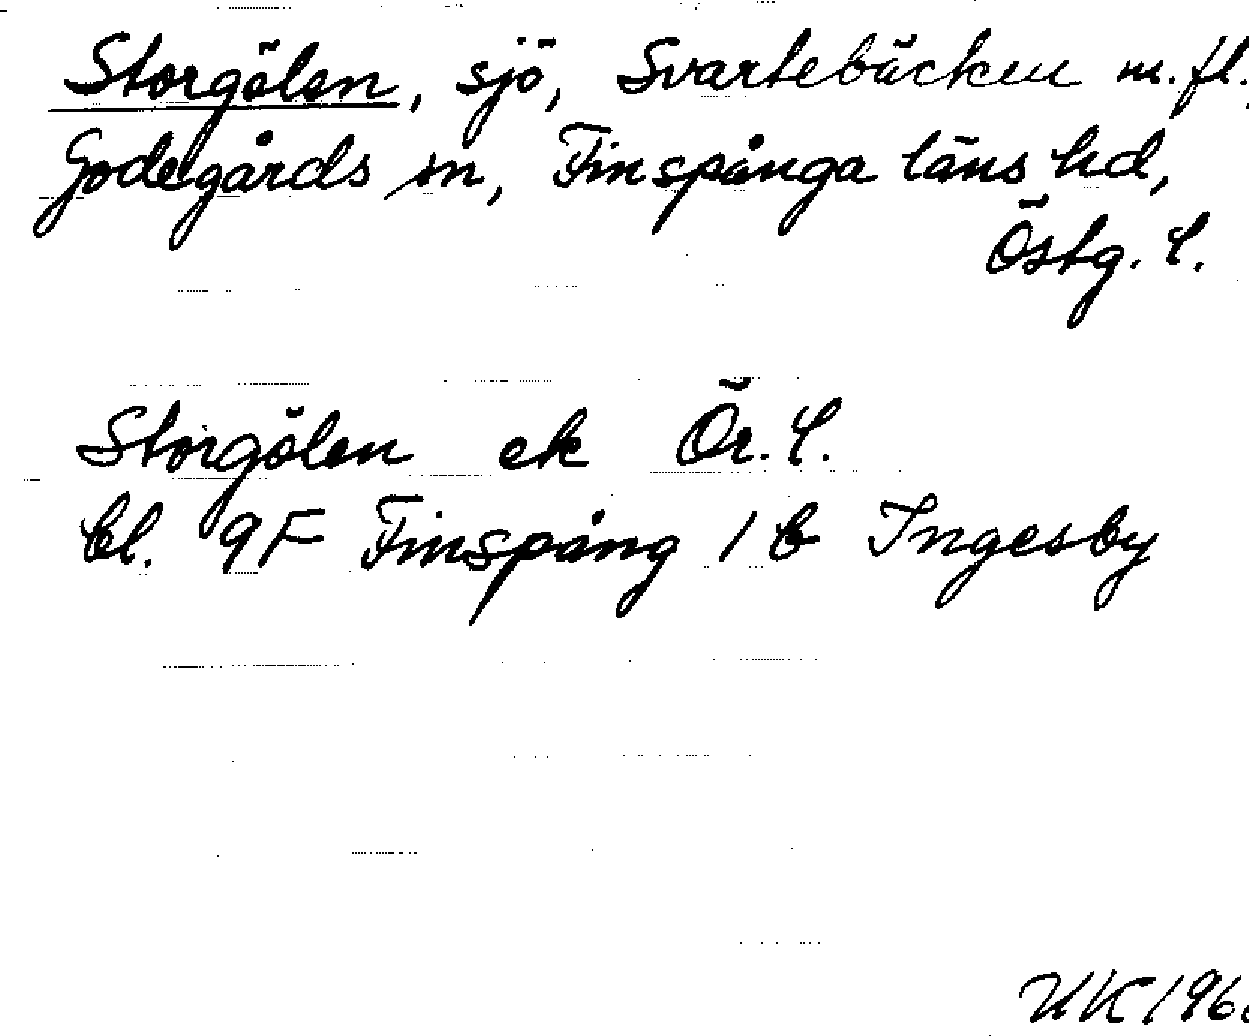 Storgölen, sjö, Svartebäcken m.fl.,
Godegårds sn, Finspånga läns hd,
Östg. l.
Storgölen ek Ör. l.
bl. 9F Finspång 1 b Ingesby
UK 196